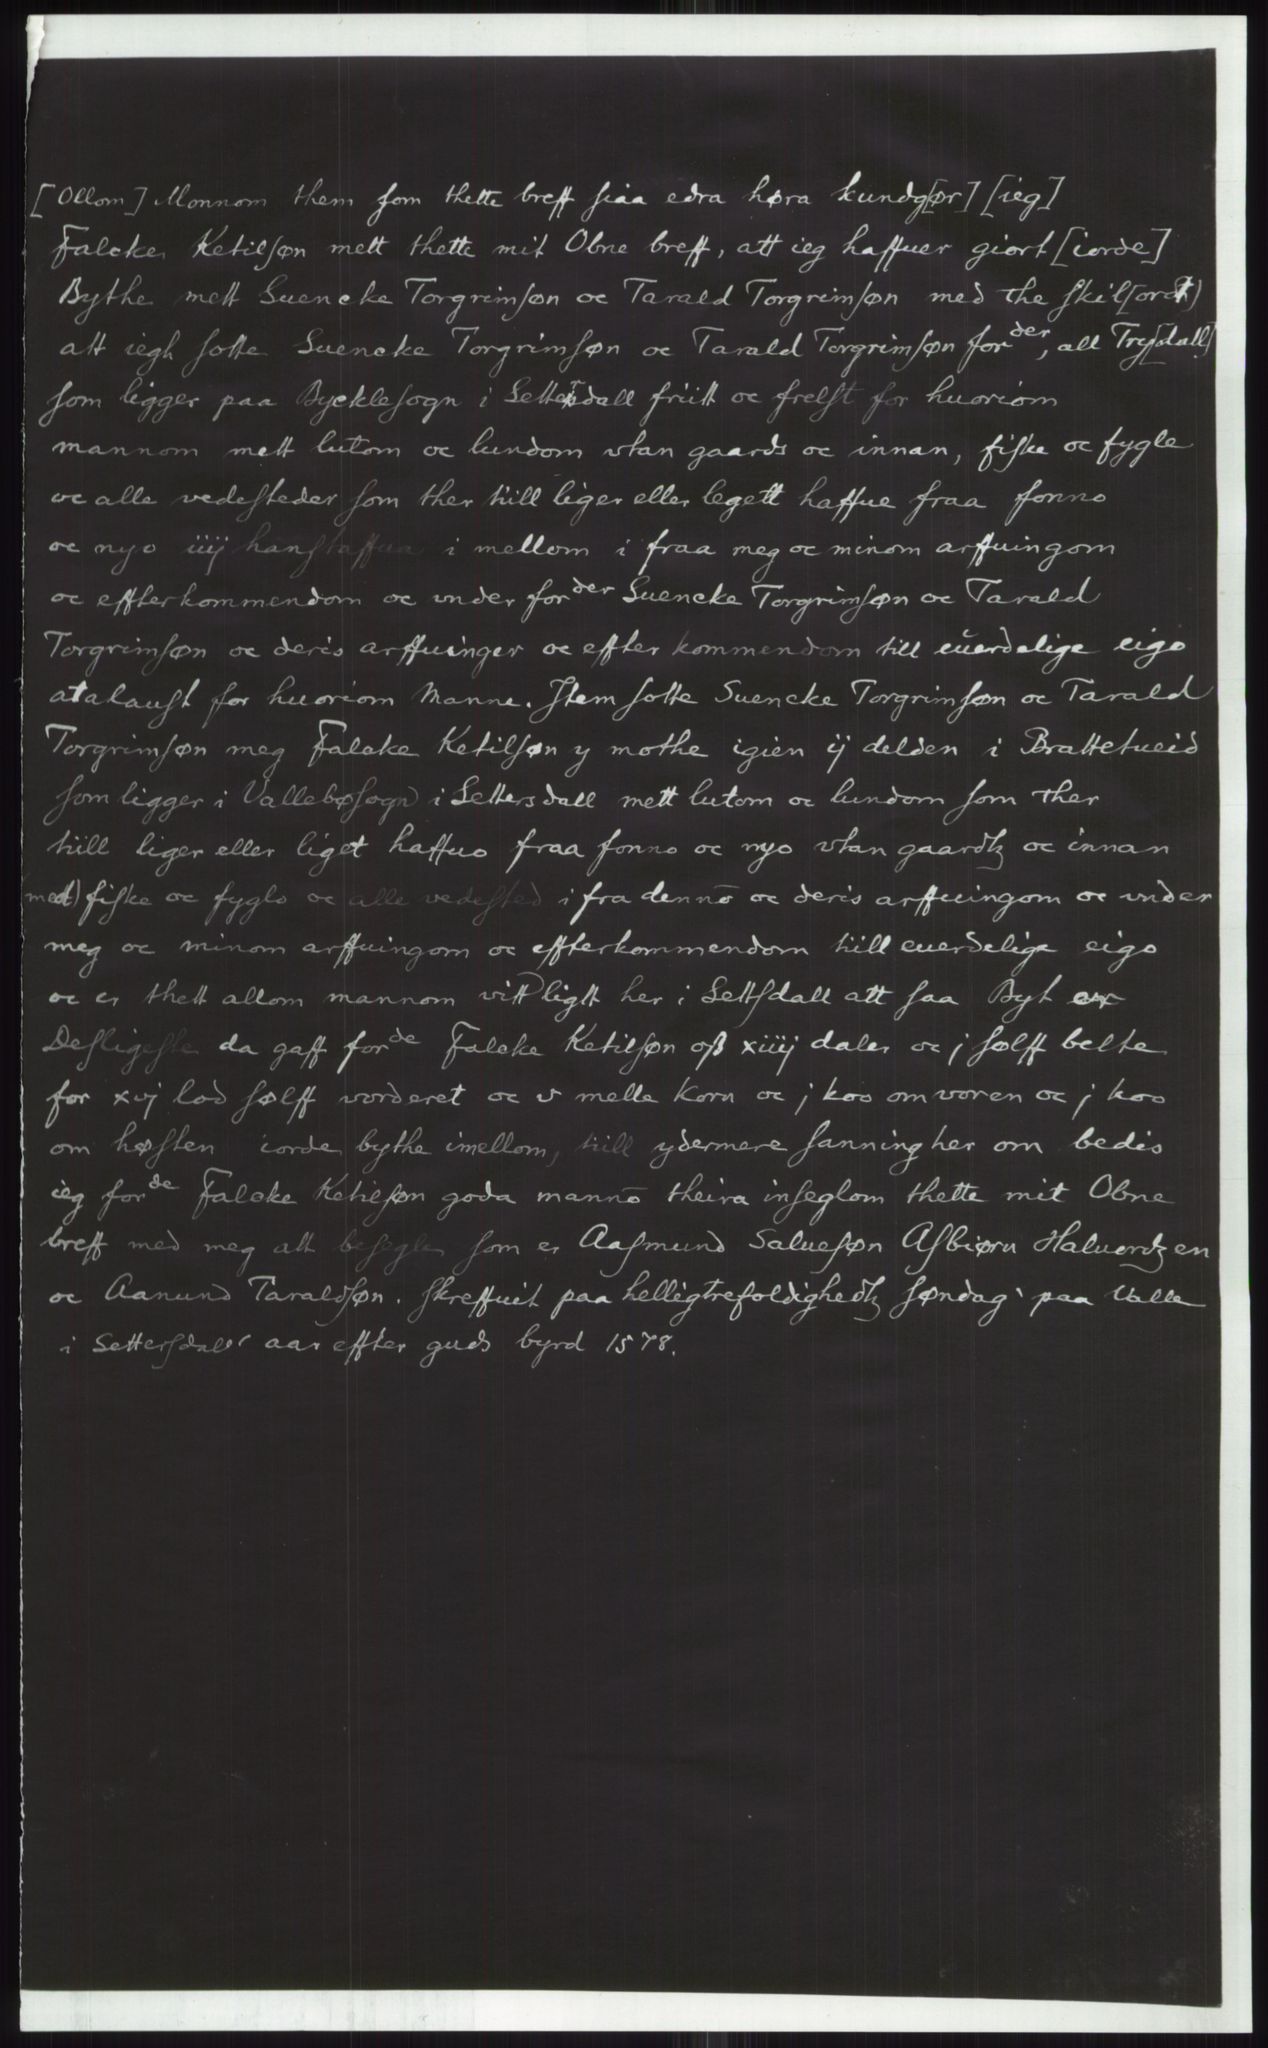 [Ollom] Monnom them som thette breff siaa edra høra kundg[ør] [ieg]
Falcke Ketilsøn mett thette mit Obne breff, att ieg haffuer giort [iorde]
Bythe mett Suencke Torgrimsøn oc Tarald Torgrimsøn med the skil[ordt]
att iegh sotte Suencke Torgrimsøn oc Tarald Torgrimsøn for der, all Try[dall]
som ligger paa Bycklesogn i Settersdall friitt oc frelst for huoriom
mannom mett lutom oc lundom vtan gaards oc innan, fiske oc fygle
oc alle vedesteder som ther tiill liger eller legett haffue fraa fonno
oc nyo iiij hanstaffua i mellom i fraa meg oc minom arffuingom
oc effterkommendom oc vnder for der Suencke Torgrimsøn oc Tarald
Torgrimsøn oc deris arffuinger oc effter kommendom till euerdelige eigo
atalaust for huoriom Manne. Item sotte Suencke Torgrimsøn oc Tarald
Torgrimsøn meg Falcke Ketilsøn y mothe igien ij delden i Brattetueid
som ligger i Vallebøsogn i Settersdall mett lutom oc lundom som ther
tiill liger eller liget haffuo fraa fonno oc nyo vtan gaardtz oc innan
med) fiske oc fyglo oc alle vedested i fra dennō oc deris arffuingom oc vnder
meg oc minom arffuingom oc effterkommendom tiill euerdelige eigo
oc er thett allom mannom vittligtt her i Settsdall att saa Byt er
Desligeste da gaff for de Falcke Ketilsøn oß xiiij daler oc j sølff belte
for xvj lod sølff vorderet oc v melle Korn oc j koo om voren oc j koo
om høsten iorde bythe imellom, tiill ydermere sanning her om bedis
ieg for de Falcke Ketilsøn goda mannō theira inseglom thette mit Obne
breff med meg att besegle som er Aasmund Saluesøn Asbiørn Haluordtzen
oc Aanund Taraldsøn. Skreffuit paa helligtrefoldighedtz søndag paa Valle
i Settersdal aar effter guds byrd 1578.